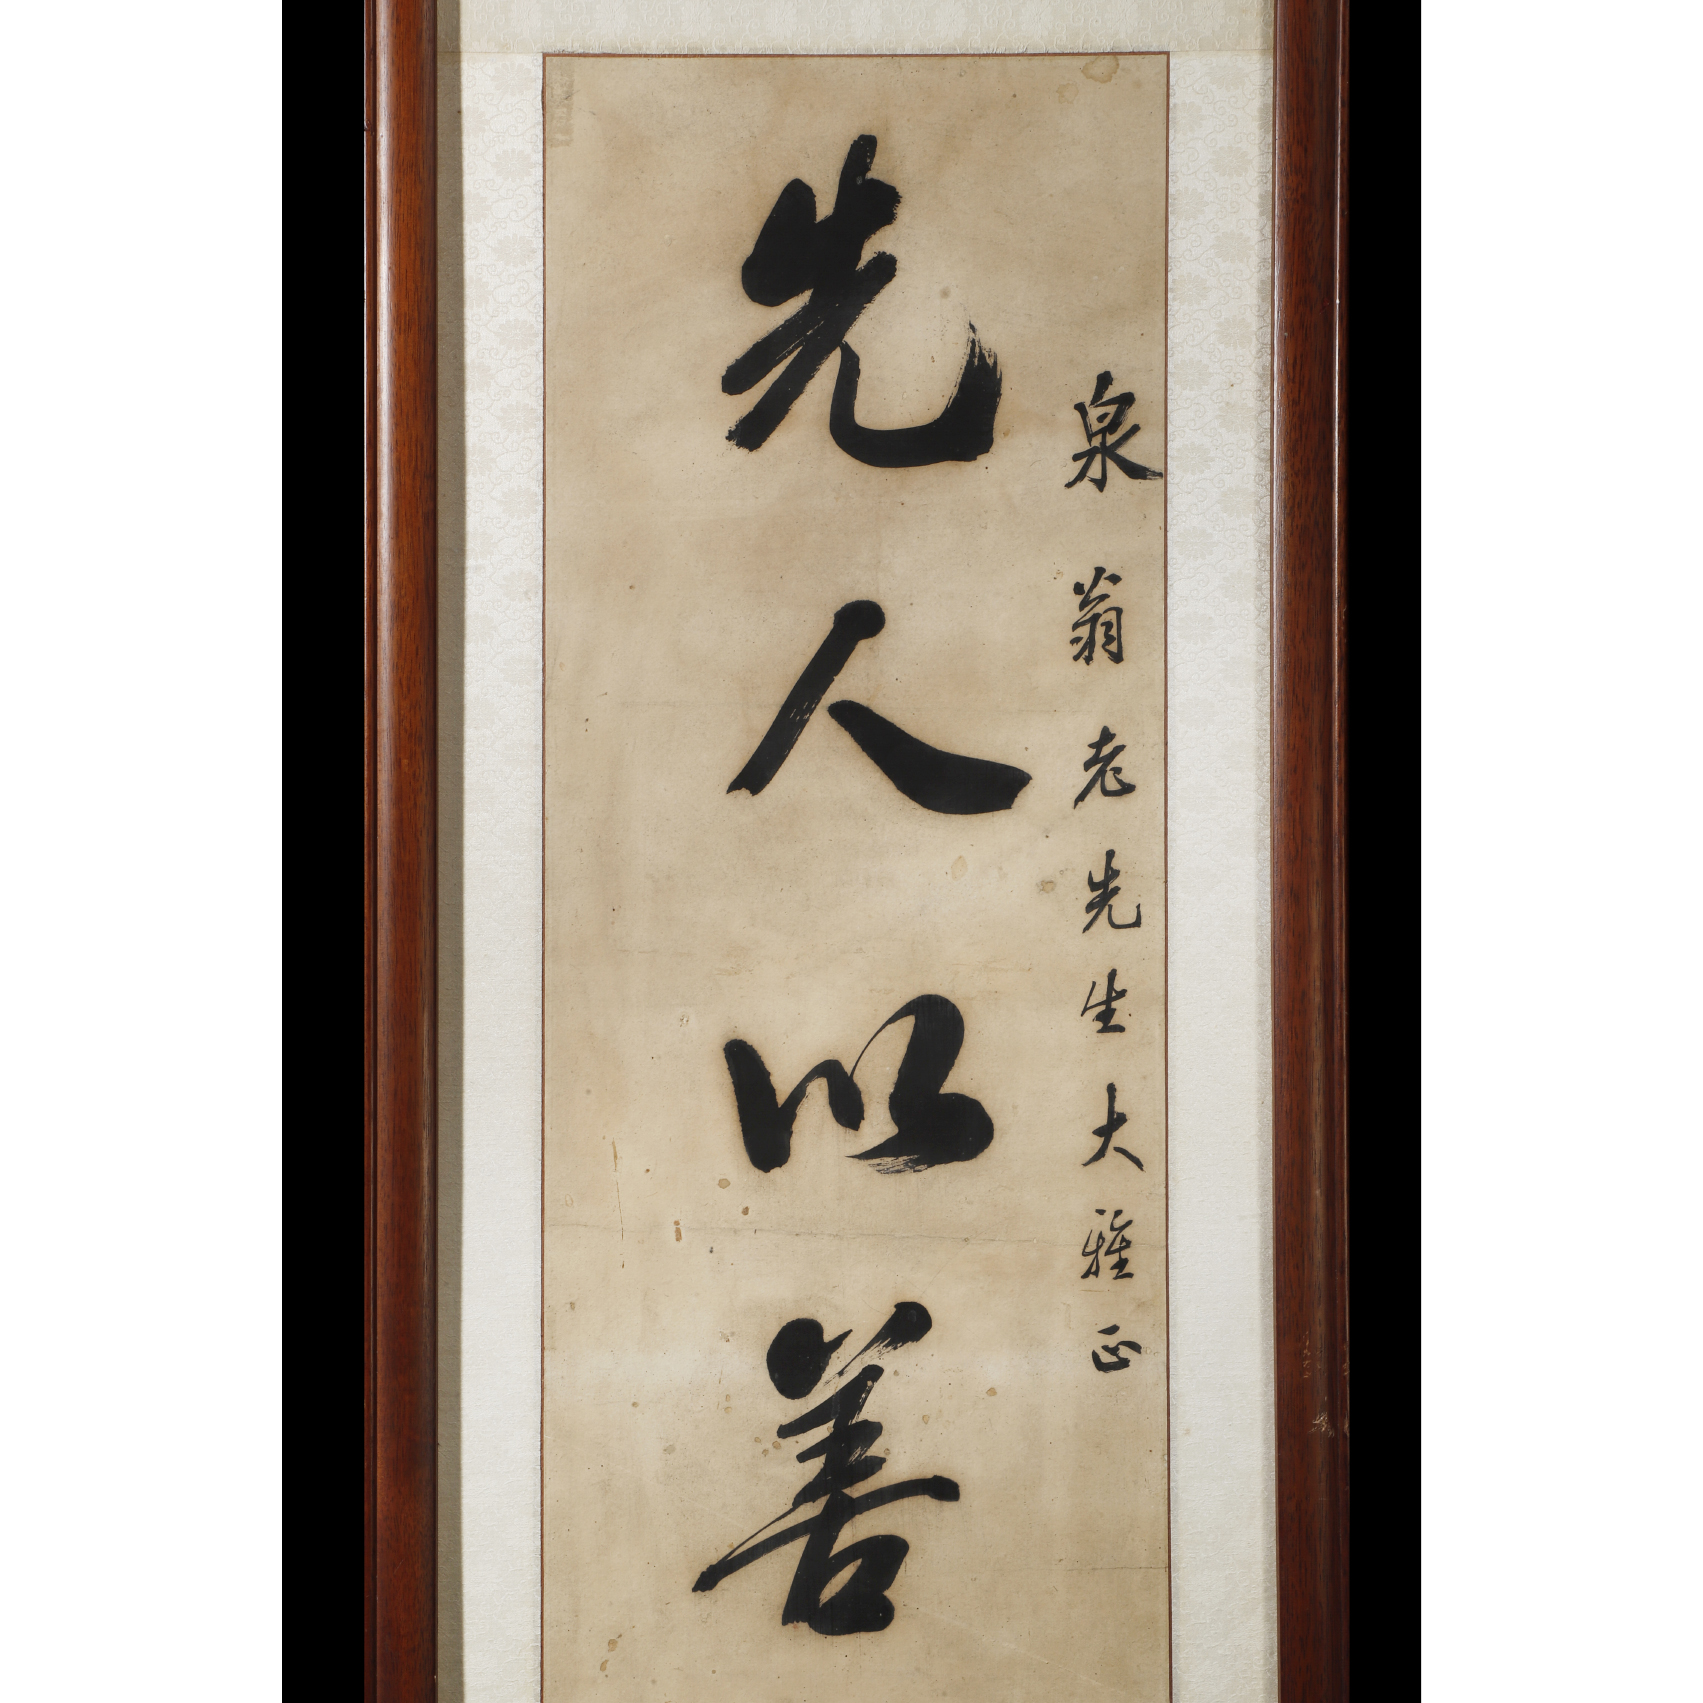 泉翁老先生大雅正
先人以善